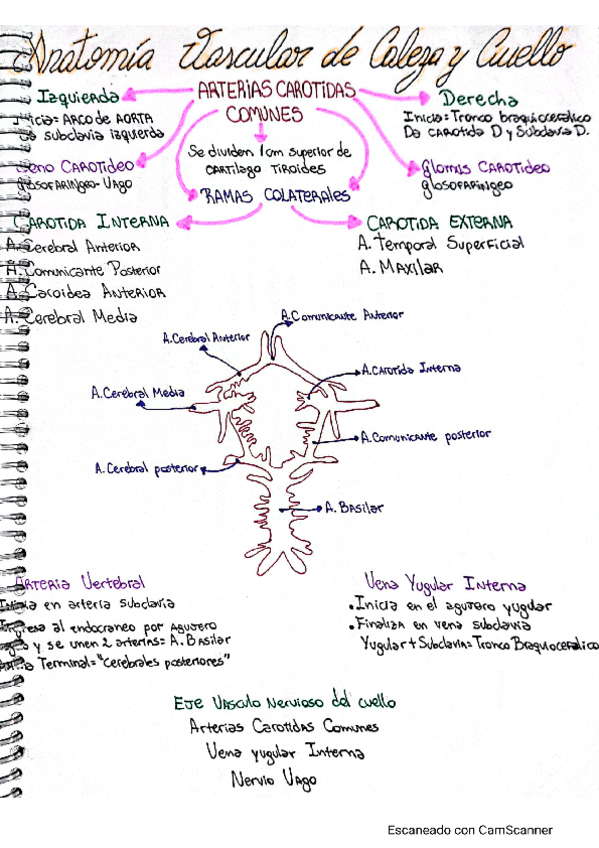 Anatomía Vascular de Cabeza y Cuello
ARTERIAS CAROTIDAS
COMUNES
Izquierda
Inicia: ARCO DE AORTA
Da subclavia izquierda
Derecha
Inicia: Tronco braquiocefalico
Da CAROTIDA D y Subclavia D.
Seno CAROTideo
glosofaringeo-Vago
Se dividen 1cm superior de
CARTÍLAGO TIROIDES
Glomus CAROTideo
glosofaringeo
RAMAS COLATERALES
CAROTIDA INTERNA
A. Cerebral Anterior
A. Comunicante Posterior
A. Coroidea ANTERIOR
A. Cerebral Media
CAROTIDA EXTERNA
A. Temporal Superficial
A. Maxilar
A. Comunicante Anterior
A. Cerebral Anterior
A. CAROTIDA Interna
A. Cerebral Media
A. Comunicante posterior
A. Cerebral posterior
A. Basilar
ARTERIA Vertebral
Inicia en arteria subclavia
Ingresa al endocraneo por AGUJERO
y se unen 2 arterias= A. Basilar
Terminal="cerebrales posteriores"
Vena Yugular Interna
• Inicia en el agujero yugular
• Finaliza en vena subclavia
Yugular + Subclavia= Tronco Braquiocefalico
Eje Vasculo Nervioso del cuello
Arterias Carotidas Comunes
Vena yugular Interna
Nervio Vago
Escaneado con CamScanner